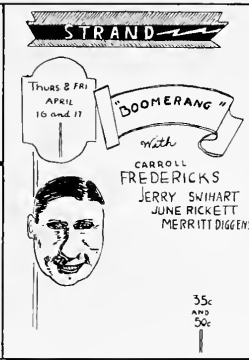 STRAND
THURS & FRI
APRIL
16 and 17
"BOOMERANG"
With
CARROLL
FREDERICKS
JERRY SWIHART
JUNE RICKETT
MERRITT DIGGENS
35c
AND
50c